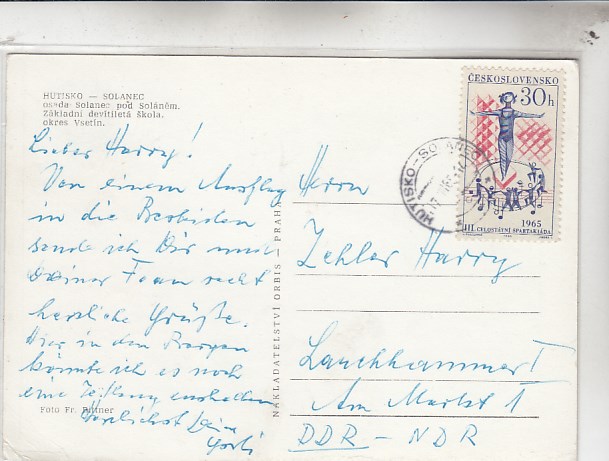 HUTISKO — SOLANEC
osada Solanec pod Soláněm.
Základní devítiletá škola.
okres Vsetín.
Lieber Harry!
Von einem Ausflug
in die Beskiden
sende ich Dir und
Deiner Frau recht
herzliche Grüße.
Hier in den Bergen
könnte ich es noch
eine Zeitlang aushalten
Herzlichst Dein
Foto Fr. Bittner
NAKLADATELSTVÍ ORBIS — PRAHA
ČESKOSLOVENSKO
30h
1965
III. CELOSTÁTNÍ SPARTAKIÁDA
HUTISKO-SOLANEC
Herrn
Zehler Harry
Lauchhammer I
Am Markt 1
DDR - NDR